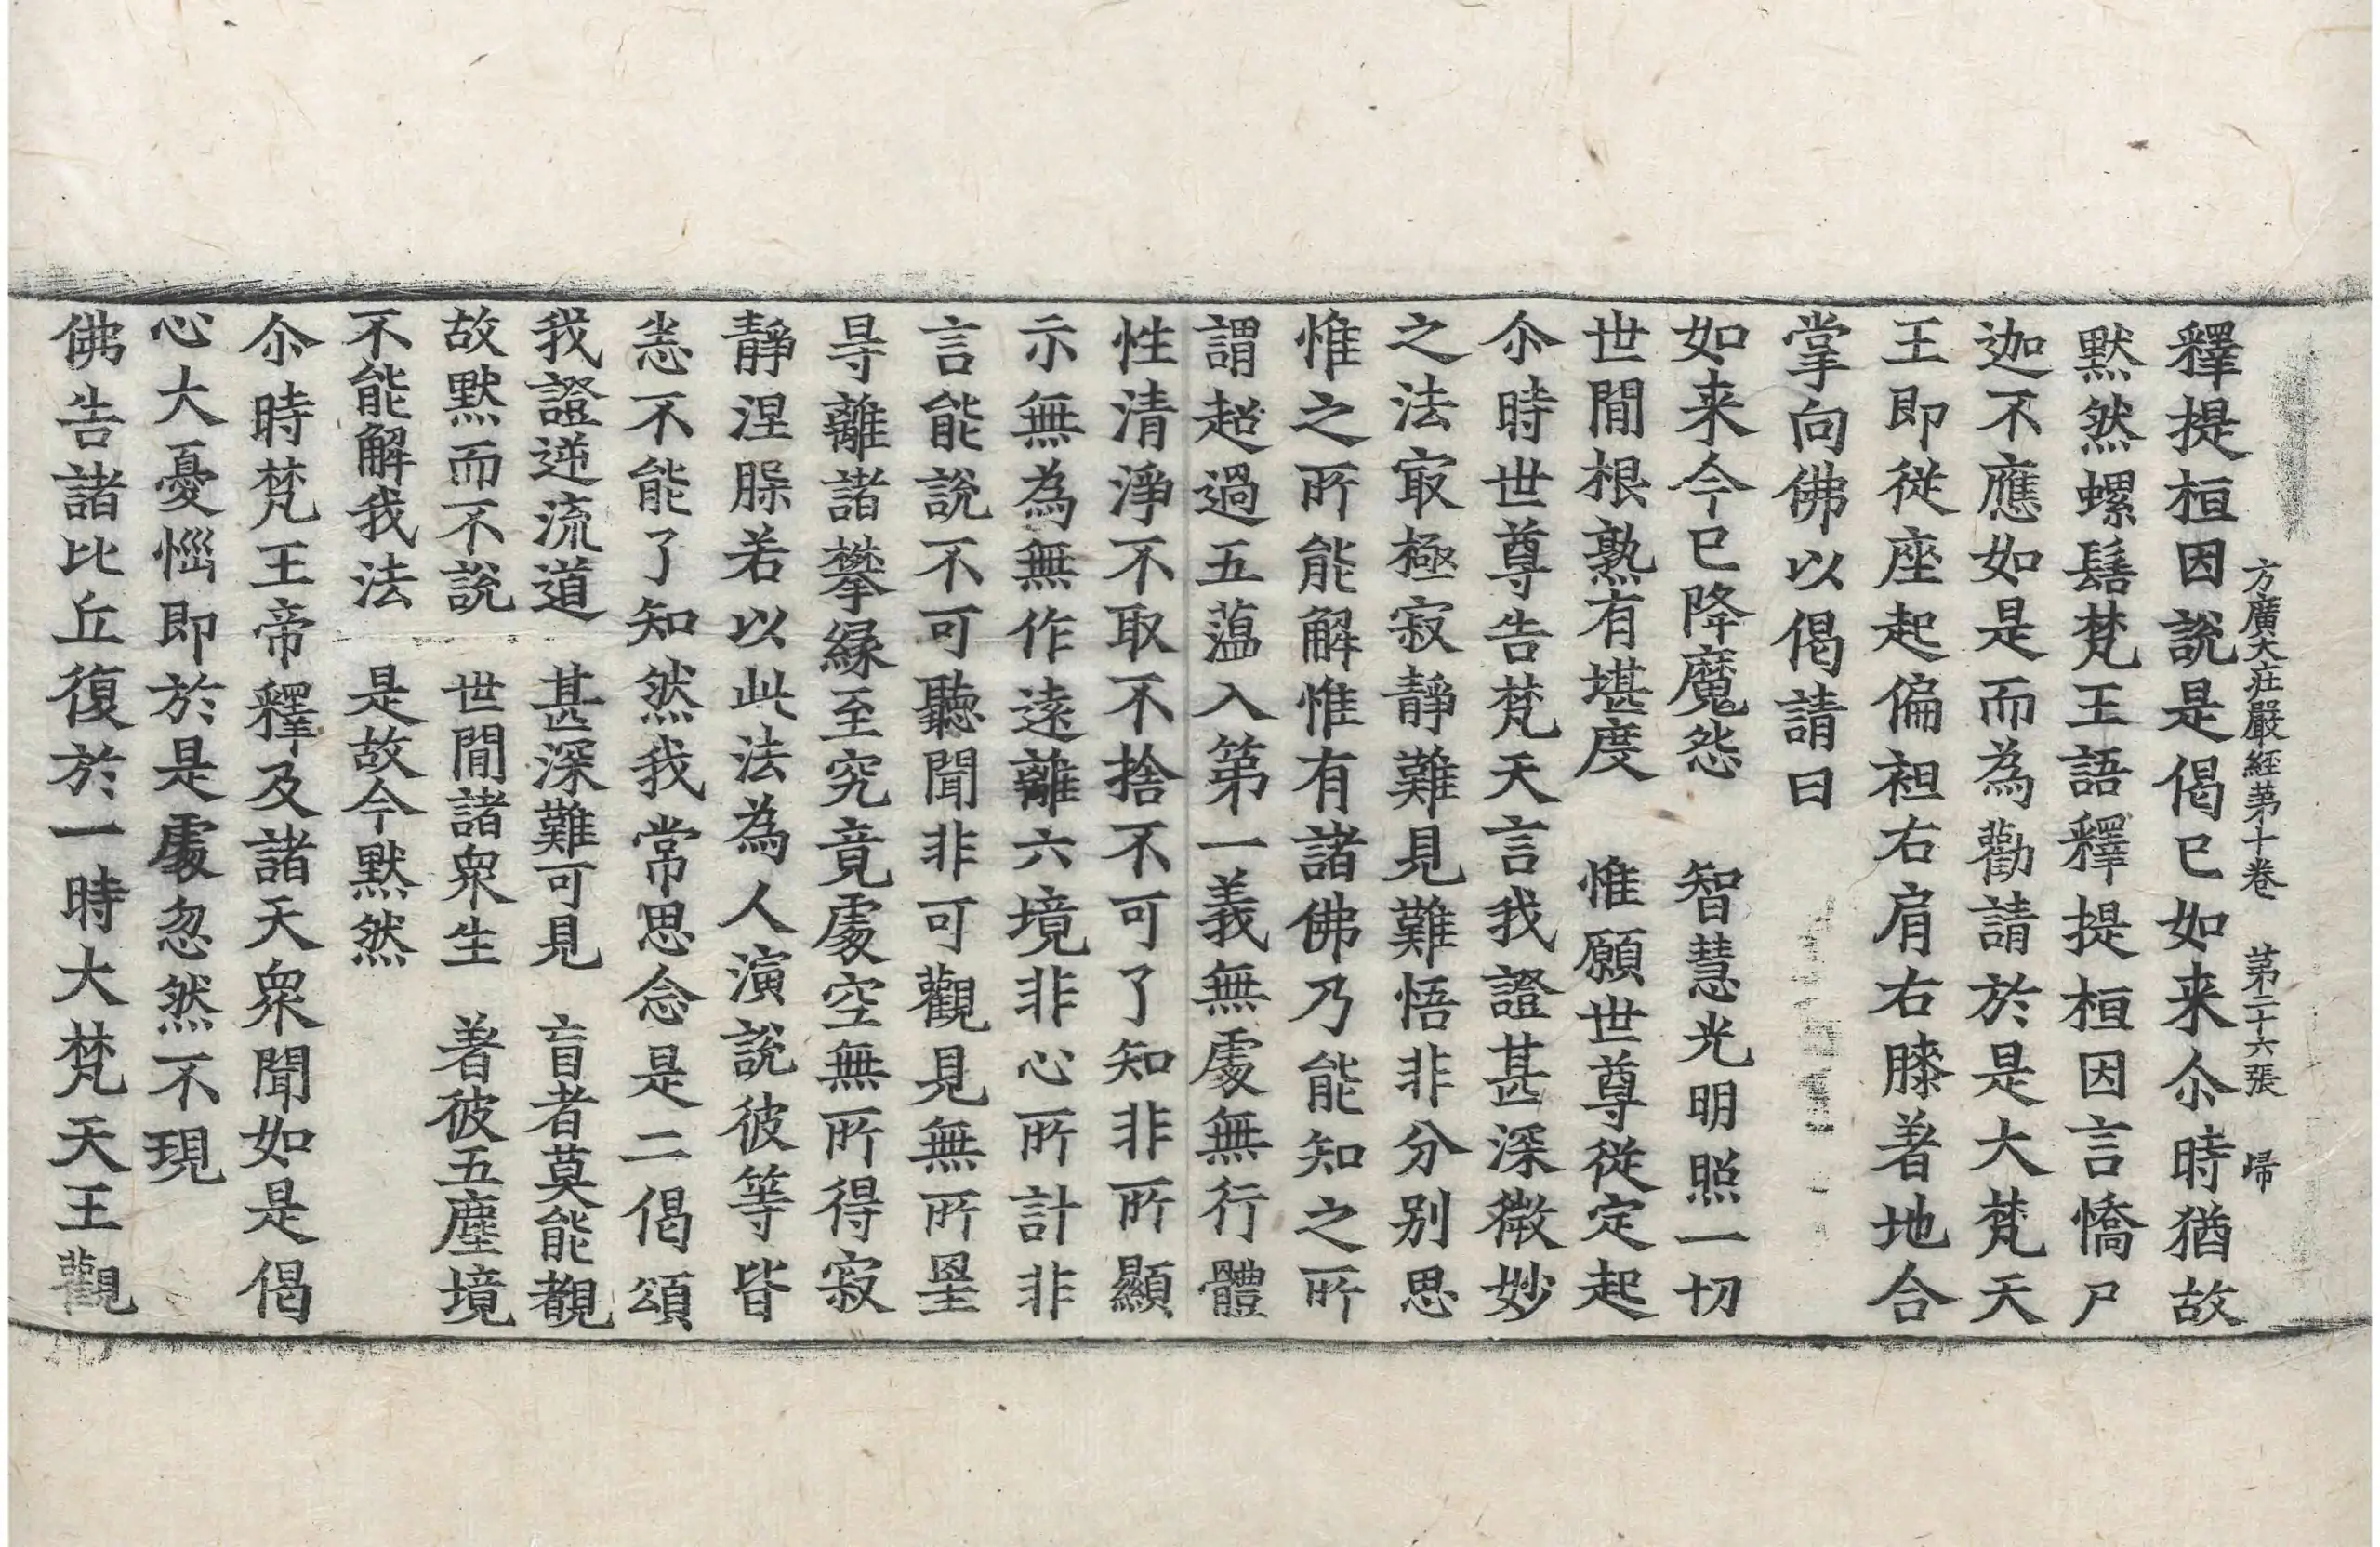 方廣大莊嚴經苐十卷 苐二十六張 㷌
釋提桓因說是偈已如来尒時猶故
默然螺髻梵王語釋提桓因言憍尸
迦不應如是而為勸請於是大梵天
王即從座起偏袒右肩右膝著地合
掌向佛以偈請曰
如来今已降魔怨 智慧光明照一切
世間根熟有堪度 惟願世尊從定起
尒時世尊告梵天言我證甚深微妙
之法㝡極寂靜難見難悟非分別思
惟之所能解惟有諸佛乃能知之所
謂超過五薀入第一義無處無行體
性清淨不取不捨不可了知非所顯
示無為無作遠離六境非心所計非
言能說不可聽聞非可觀見無所罣
㝵離諸攀緣至究竟處空無所得寂
靜涅槃若以此法為人演說彼等皆
悉不能了知然我常思念是二偈頌
我證逆流道 甚深難可見 盲者莫能覩
故默而不說 世間諸衆生 著彼五塵境
不能解我法 是故今默然
尒時梵王帝釋及諸天衆聞如是偈
心大憂惱即於是處忽然不現
佛告諸比丘復於一時大梵天王觀